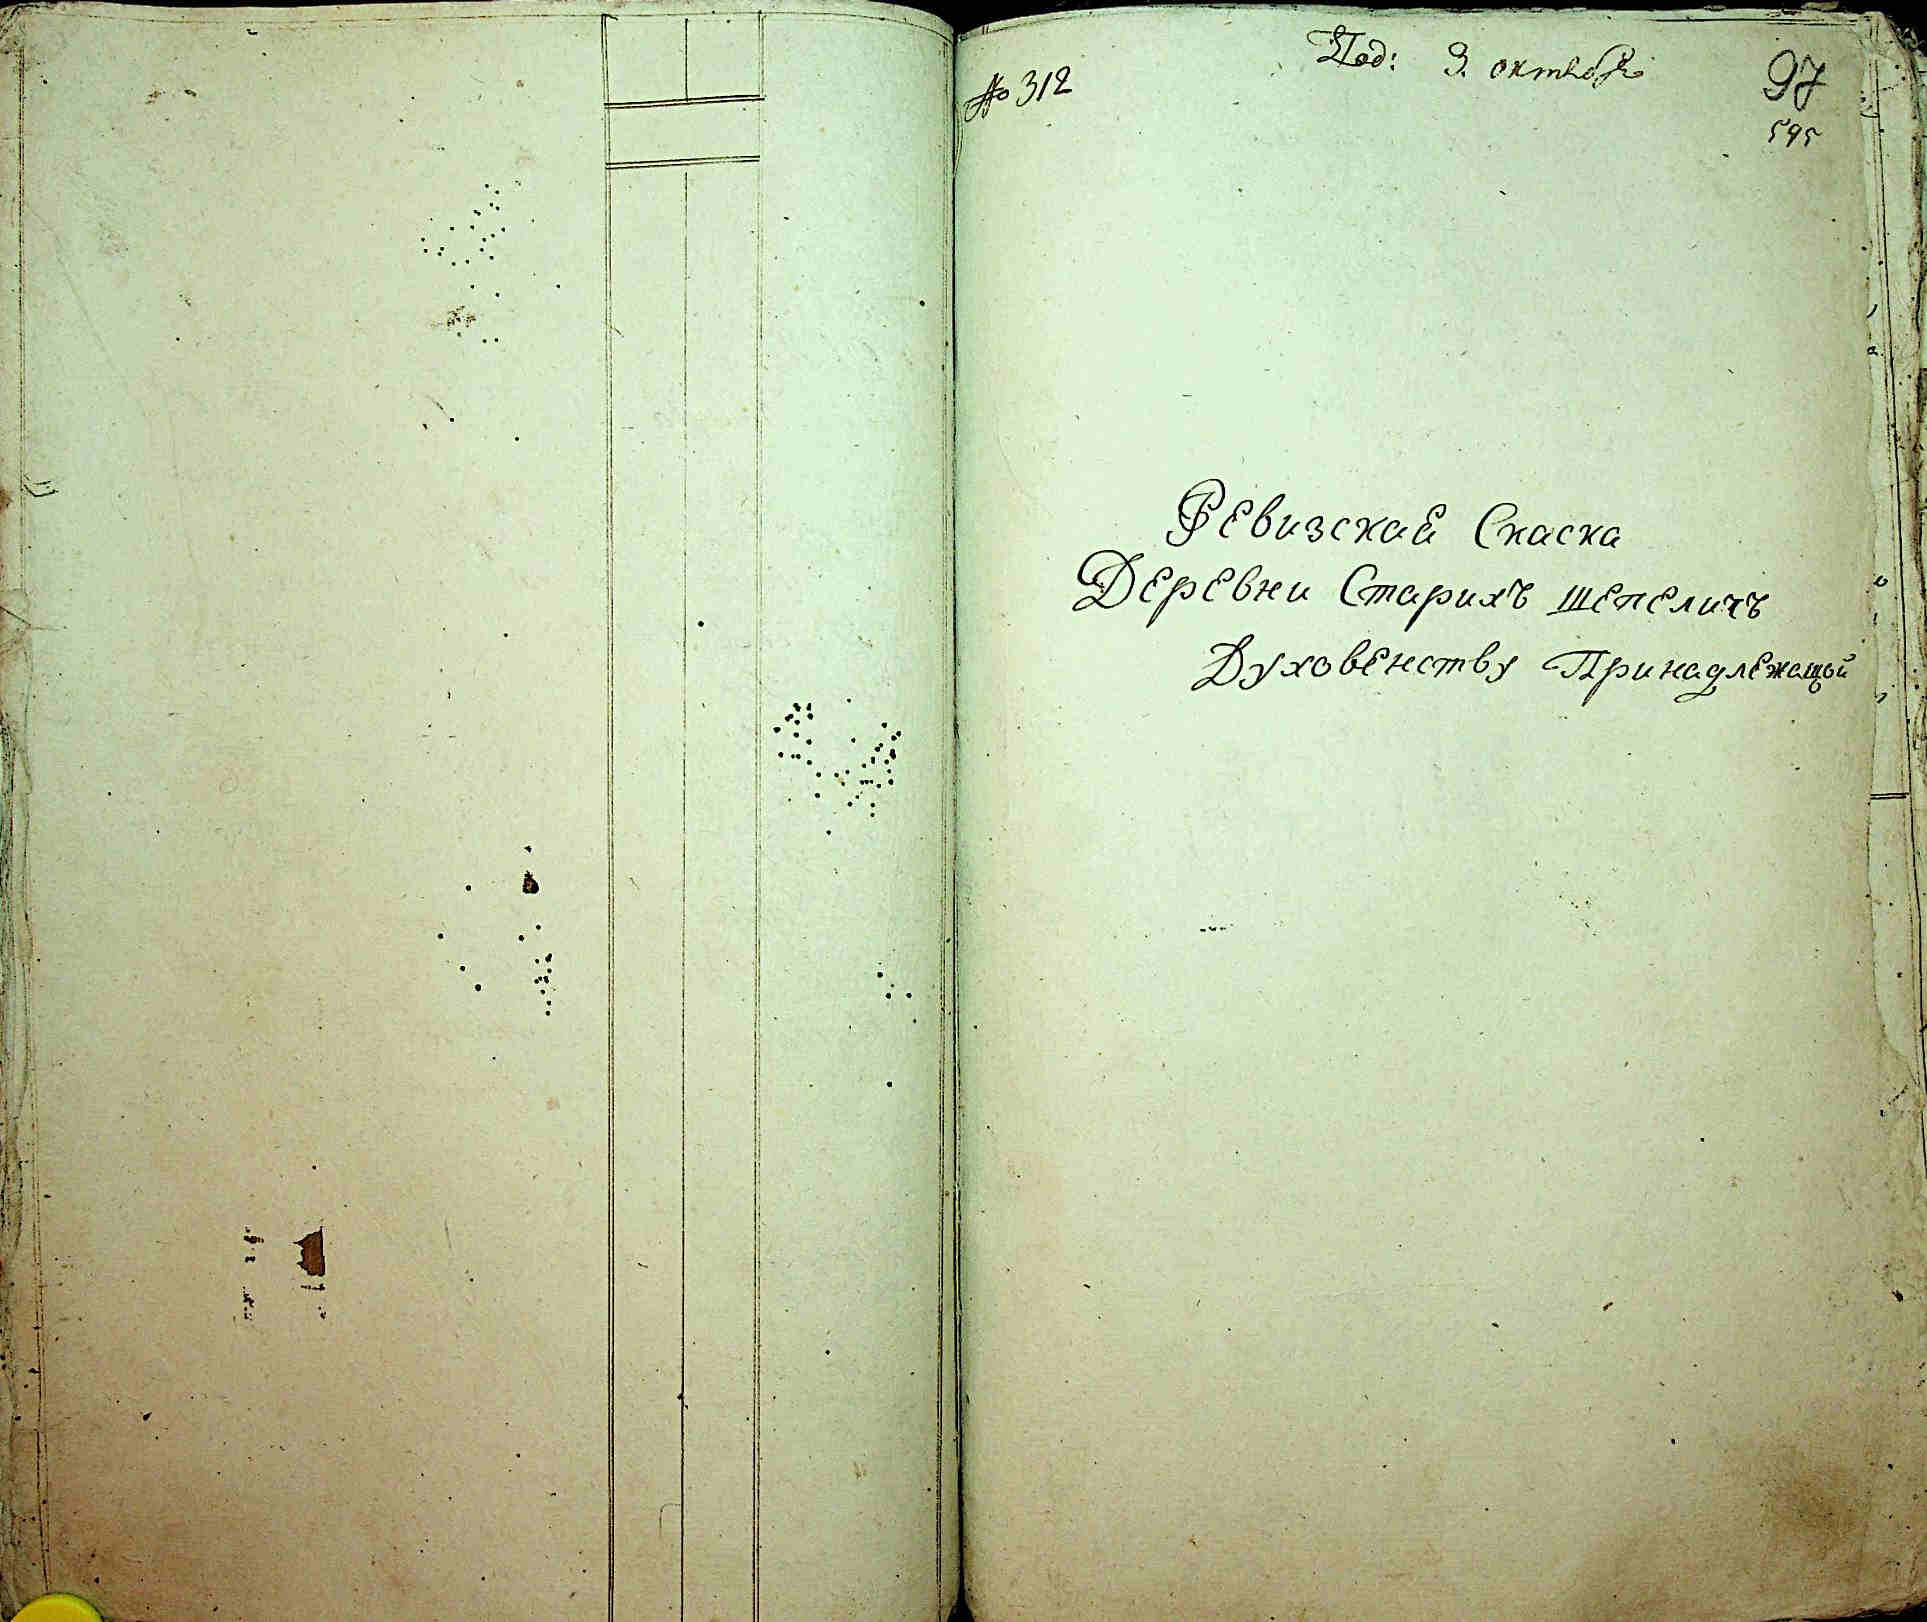 № 312
Под: 3. октября
97
595
Ревизская Скаска
Деревни Старихъ Шепеличъ
Духовенству Принадлежащой